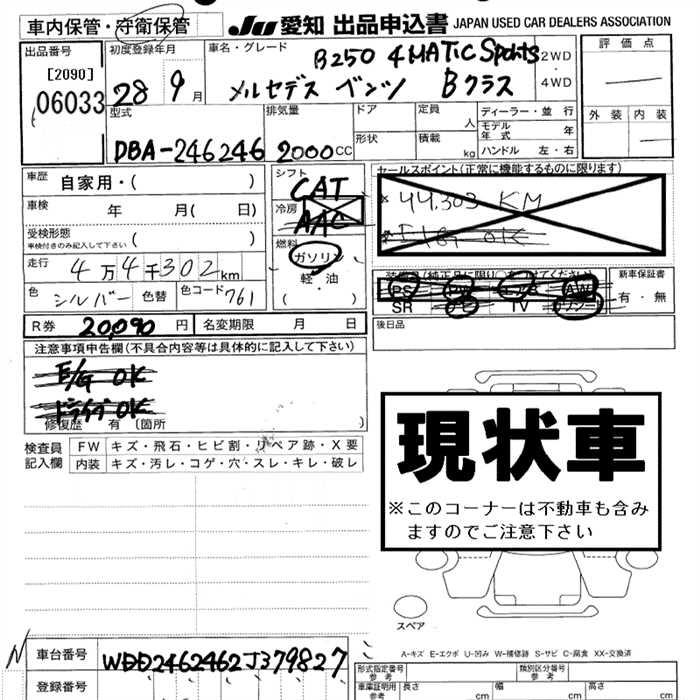 車内保管・守衛保管
JU 愛知 出品申込書 JAPAN USED CAR DEALERS ASSOCIATION
出品番号
[2090]
06033
初度登録年月
28 9月
車名・グレード
B250 4MATIC Sports
メルセデス ベンツ Bクラス
2WD
4WD
評価点
外装 内装
型式
DBA-246246
排気量
2000CC
ドア
形状
定員
人
積載
kg
ディーラー・並行
モデル年式 年
ハンドル 左・右
車歴
自家用・( )
車検
年 月( 日)
受検形態
車検付きのみ記入して下さい ( )
走行
4万4千302km
色
シルバー
色替
色コード 761
R券 20,090円
名変期限 月 日
シフト
CAT
冷房
AAC
燃料
ガソリン
軽・油
セールスポイント(正常に機能するものに限ります)
44.303 KM
E/G OK
PS AW
SR TV
新車保証書
有・無
後日品
注意事項申告欄(不具合内容等は具体的に記入して下さい)
E/G OK
ドライブ OK
修復歴 有 〔箇所 〕
検査員記入欄
FW キズ・飛石・ヒビ割・リペア跡・X要
内装 キズ・汚レ・コゲ・穴・スレ・キレ・破レ
現状車
※このコーナーは不動車も含み
ますのでご注意下さい
スペア
A-キズ E-エクボ U-凹み W-補修跡 S-サビ C-腐食 XX-交換済
N
車台番号 WDD2462462J379827
登録番号
形式指定番号 参考
類別区分番号 参考
車庫証明用 参考
長さ cm
幅 cm
高さ cm